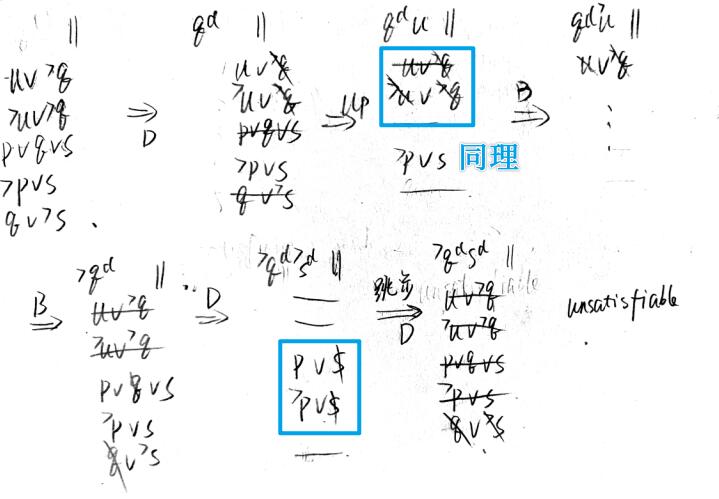 ||
u∨¬q
¬u∨¬q
p∨q∨s
¬p∨s
q∨¬s
⇒
D
qᵈ ||
u∨¬q
¬u∨¬q
p∨q∨s
¬p∨s
q∨¬s
⇒
UP
qᵈu ||
u∨¬q
¬u∨¬q
¬p∨s 同理
B
⇒
qᵈu ||
u∨¬q
B
⇒
¬qᵈ ||
u∨¬q
¬u∨¬q
p∨q∨s
¬p∨s
q∨¬s
D
⇒
¬qᵈ¬sᵈ ||
p∨s
¬p∨s
跳步
⇒
D
¬qᵈsᵈ ||
u∨¬q
¬u∨¬q
p∨q∨s
¬p∨s
q∨¬s
unsatisfiable